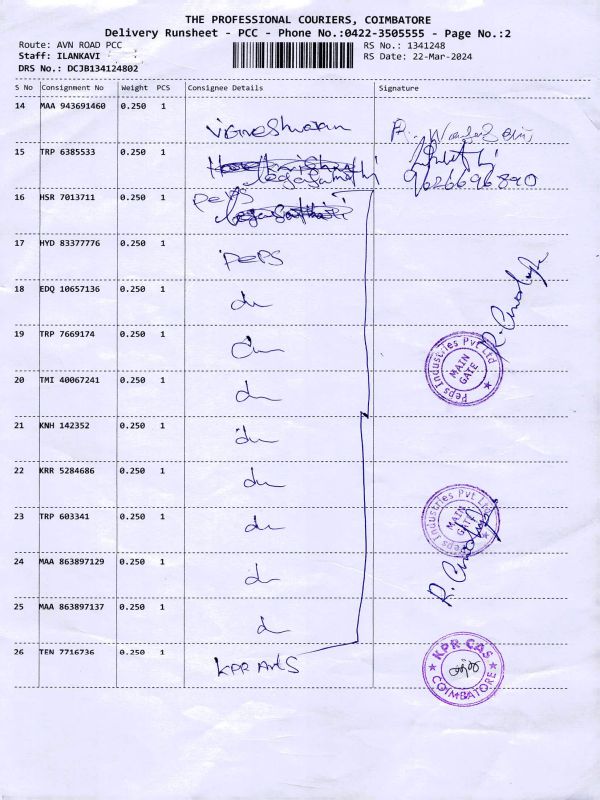 THE PROFESSIONAL COURIERS, COIMBATORE
Delivery Runsheet - PCC - Phone No.:0422-3505555 - Page No.:2
Route: AVN ROAD PCC RS No.: 1341248
Staff: ILANKAVI RS Date: 22-Mar-2024
DRS No.: DCJB134124802
S No Consignment No Weight PCS Consignee Details Signature
14 MAA 943691460 0.250 1
Vigneshwaran
15 TRP 6385533 0.250 1
9626696890
16 HSR 7013711 0.250 1 PEPS
17 HYD 83377776 0.250 1 PEPS
18 EDQ 10657136 0.250 1
19 TRP 7669174 0.250 1
Peps Industries Pvt Ltd
MAIN
GATE
20 TMI 40067241 0.250 1
21 KNH 142352 0.250 1
22 KRR 5284686 0.250 1
23 TRP 603341 0.250 1
Peps Industries Pvt Ltd
MAIN
GATE
24 MAA 863897129 0.250 1
25 MAA 863897137 0.250 1
26 TEN 7716736 0.250 1 KPR Arts
KPR CAS
COIMBATORE